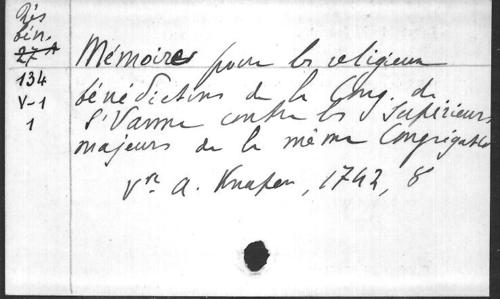 Rés
bén.
27 A
134
V-1
1
Mémoires pour les religieux
bénédictins de la Cong. de
St Vanne contre les Supérieurs
majeurs de la même Congrégation
Vve A. Knapen, 1742, 8